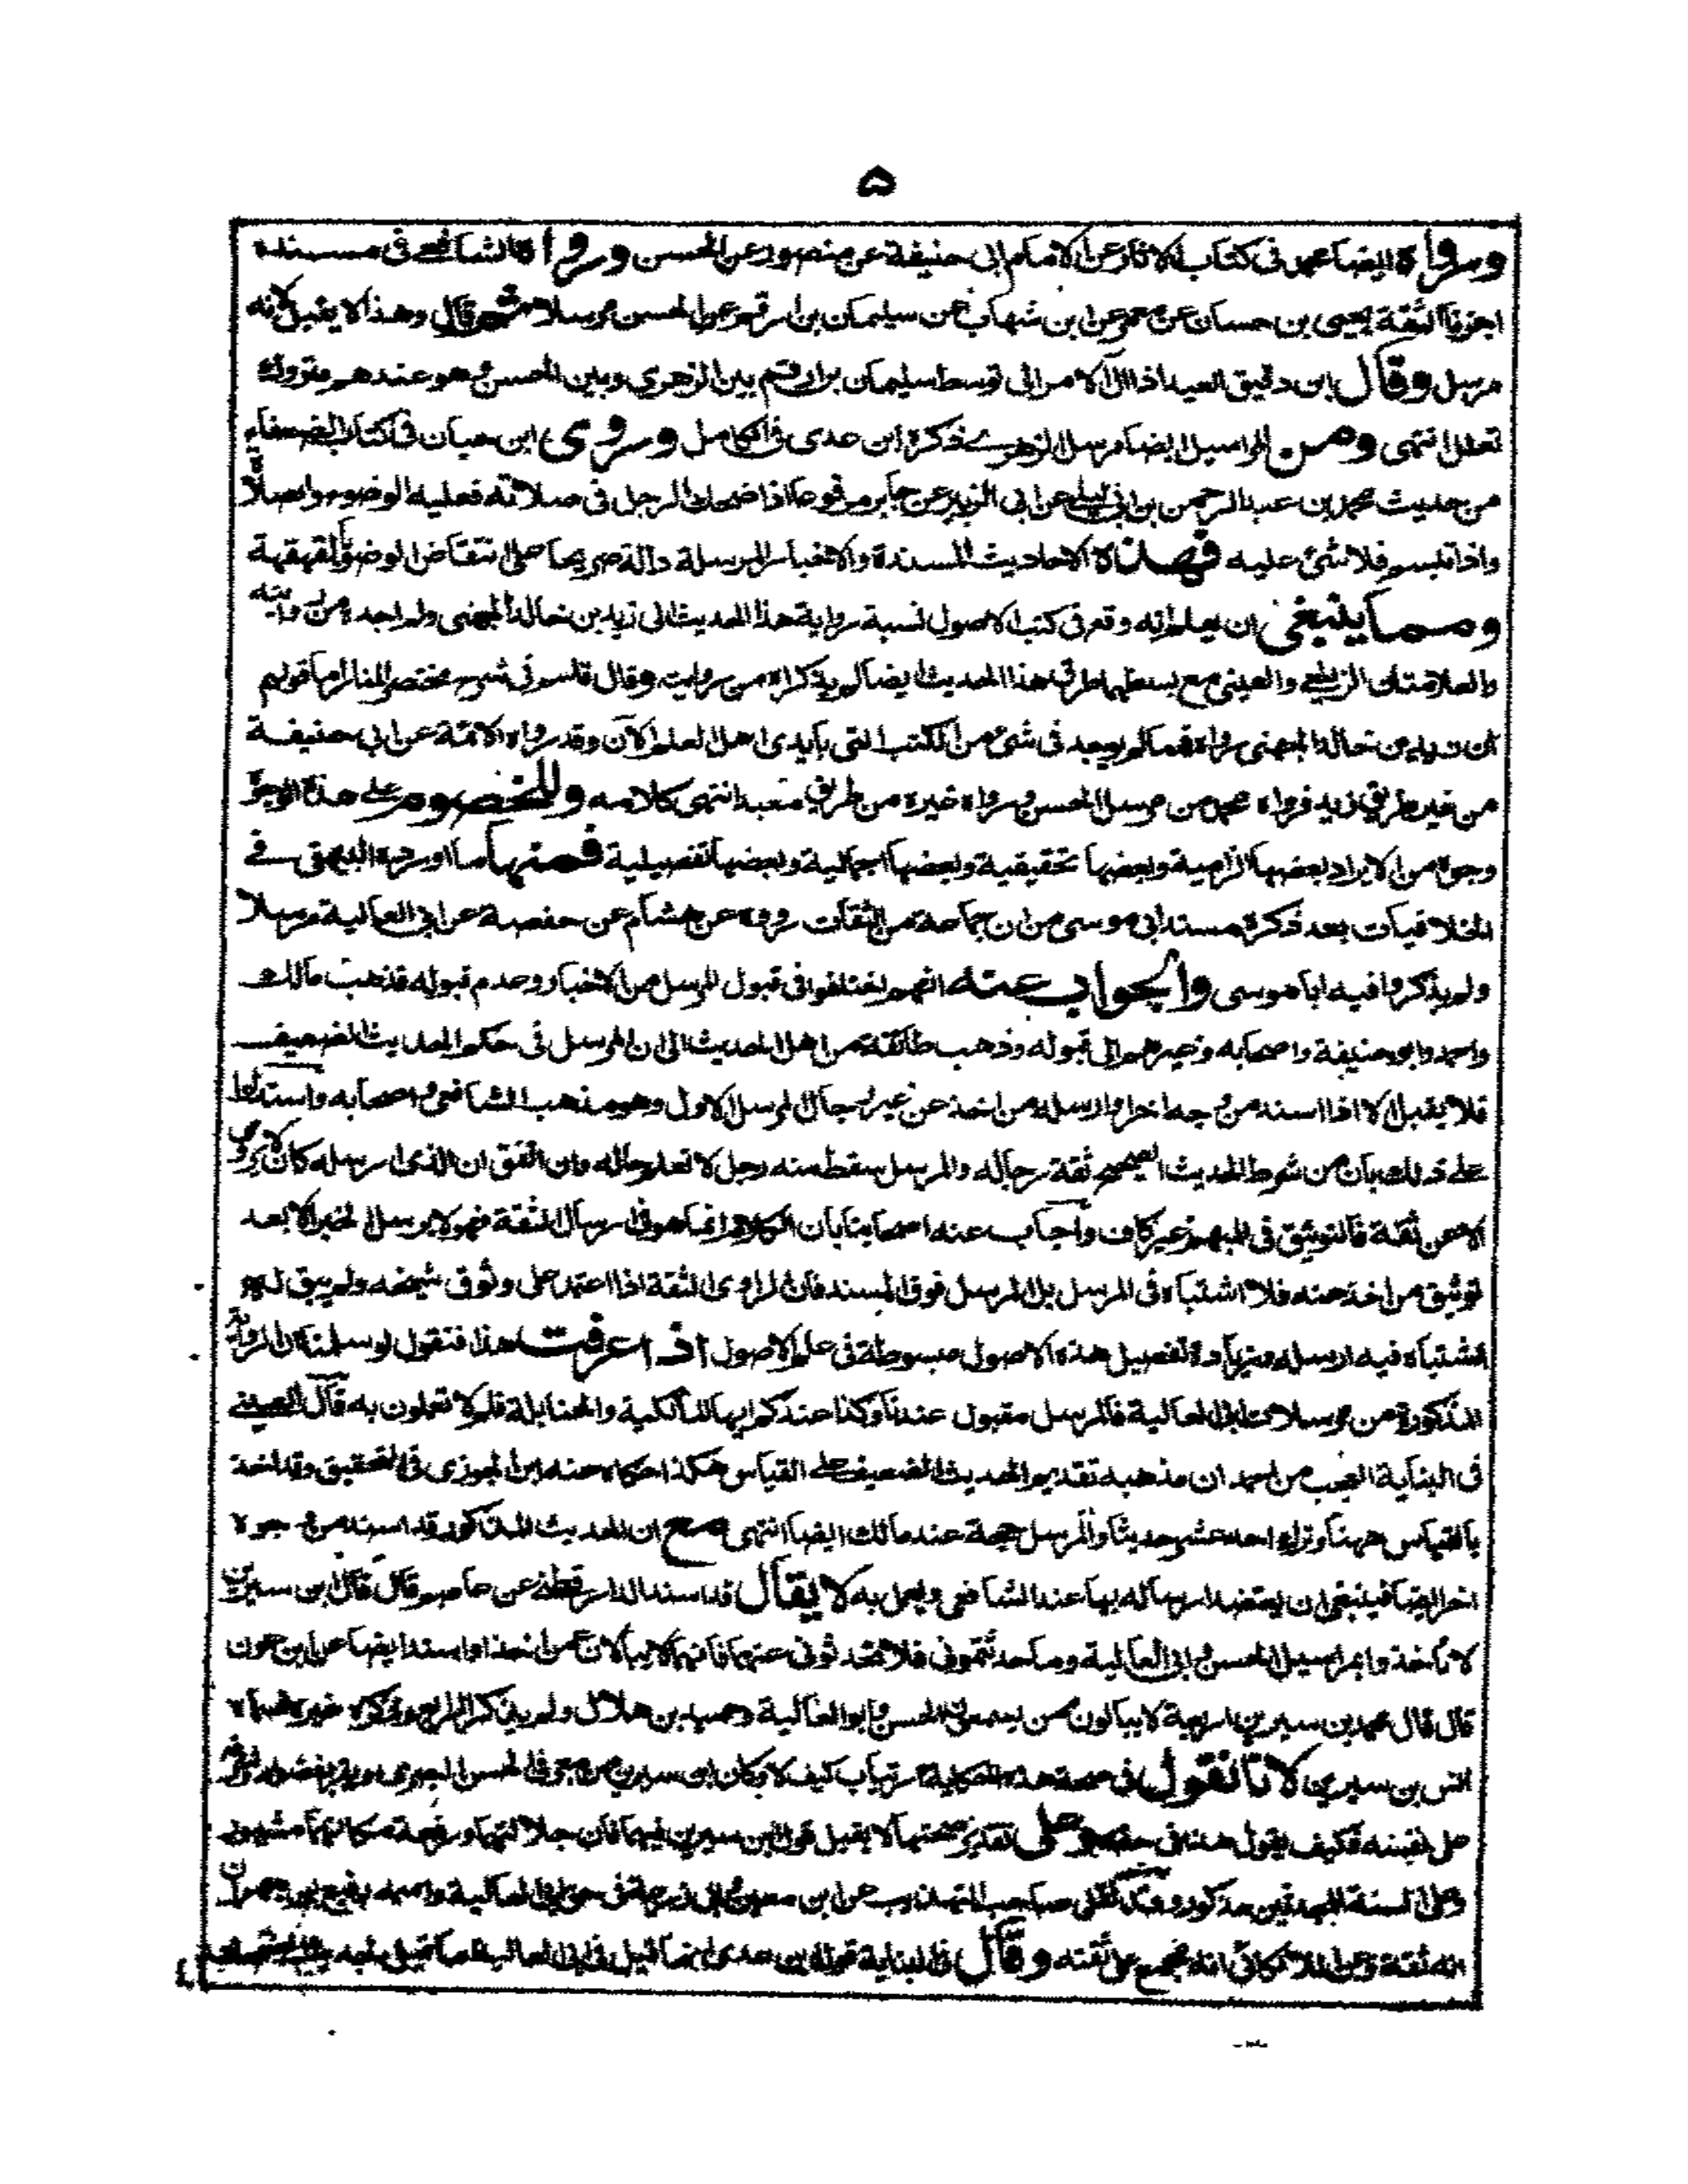 ۵
ورواه ايضا محمد فى كتاب الاثار عن الامام ابى حنيفة عن منصور عن الحسن ورواه الشافعى فى مسنده
اخبرنا الثقة يحيى بن حسان عن معمر عن ابن شهاب عن سليمان بن ارقم عن الحسن مرسلا ثم قال وهذا لا يقبل لانه
مرسل وقال ابن دقيق العيد اذا آل الامر الى توسط سليمان بن ارقم بين الزهرى وبين الحسن وهو عندهم متروك
تعلل انتهى ومن المراسيل ايضا مرسل الزهرى ذكره ابن عدى فى الكامل وروى ابن حبان فى كتاب الضعفاء
من حديث محمد بن عبد الرحمن بن ابى ليلى عن ابى الزبير عن جابر مرفوعا اذا ضحك الرجل فى صلاته فعليه الوضوء والصلاة
واذا تبسم فلا شئ عليه فهذه الاحاديث المسندة والاخبار المرسلة دالة صريحا على انتقاض الوضوء بالقهقهة
ومما ينبغى ان يعلم انه وقع فى كتب الاصول نسبة رواية هذا الحديث الى زيد بن خالد الجهنى ولم اجده من روايته
والعلامتان الزيلعى والعينى مع بسطهما طرق هذا الحديث ايضا لم يذكراه من روايته وقال قاسم فى شرح مختصر المنار اما قولهم
ان زيد بن خالد الجهنى رواه فمما لم يوجد فى شئ من الكتب التى بايدى اهل العلم الآن وقد رواه الائمة عن ابى حنيفة
من غير طريق زيد فرواه محمد من مرسل الحسن ورواه غيره من طريق معبد انتهى كلامه وللخصوم على هذا الوجه
وجوه من الايراد بعضها الزامية وبعضها تحقيقية وبعضها اجمالية وبعضها تفصيلية فمنها ما اورده البيهقى فى
الخلافيات بعد ذكره مسند ابى موسى من ان جماعة من الثقات رووه عن هشام عن حفصة عن ابى العالية مرسلا
ولم يذكروا فيه ابا موسى والجواب عنه انهم اختلفوا فى قبول المرسل من الاخبار وعدم قبوله فذهب مالك
واحمد وابو حنيفة واصحابه وغيرهم الى قبوله وذهب طائفة من اهل الحديث الى ان المرسل فى حكم الحديث الضعيف
فلا يقبل الا اذا اسند من وجه اخر او ارسله من اخذ عن غير رجال المرسل الاول وهو مذهب الشافعى واصحابه واستدلوا
على ذلك بان من شرط الحديث الصحيح ثقة رجاله والمرسل سقط منه رجل لا تعلم حاله وان اتفق ان الذى ارسله كان لا يروى
الا عن ثقة فالتوثيق فى المبهم غير كاف واجاب عنه اصحابنا بان الكلام انما هو فى ارسال الثقة فهو لا يرسل الخبر الا بعد
توثيق من اخذ عنه فلا اشتباه فى المرسل بل المرسل فوق المسند فان الراوى الثقة اذا اعتمد على وثوق شيخه ولم يبق له
اشتباه فيه ارسله وزيادة تفصيل هذه الاصول مبسوطة فى علم الاصول اذا عرفت هذا فنقول لو سلمنا ان الرواية
المذكورة من مرسلات ابى العالية فالمرسل مقبول عندنا وكذا عندكم ايها المالكية والحنابلة فلم لا تعملون به قال العينى
فى البناية العجب من احمد ان مذهبه تقديم الحديث الضعيف على القياس هكذا حكاه عنه ابن الجوزى فى التحقيق وقد اخذ
بالقياس ههنا وترك احد عشر حديثا والمرسل حجة عند مالك ايضا انتهى مع ان الحديث المذكور قد اسند من وجوه
اخر ايضا فينبغى ان يعتضد ارساله بها عند الشافعى ويعمل به لا يقال قد اسند الدارقطنى عن عاصم قال قال ابن سيرين
لا تأخذوا بمراسيل الحسن وابى العالية وما حدثتمونى فلا تحدثونى عنهما فانهما لا يباليان عمن اخذا واسند ايضا عن ابن عون
قال قال محمد بن سيرين اربعة لا يبالون ممن يسمعون الحسن وابو العالية وحميد بن هلال ولم يذكر الرابع وذكره غيره فسماه
انس بن سيرين لانا نقول فى صحة هذه الحكاية ارتياب كيف لا وكان ابن سيرين
على نفسه فكيف يقول هذا فى حقه وعلى تقدير صحتها لا يقبل قول ابن سيرين فيهما فان جلالتهما ورفعة مكانهما مشهور
وعلى السنة المحدثين مذكور وقد نقل صاحب التهذيب عن ابن معين وابى زرعة فى حق ابى العالية واسمه رفيع بن مهران
انه ثقة وعن اللالكائى انه مجمع على ثقته وقال فى البناية قول ابن عدى انما قيل فى ابى العالية ما قيل